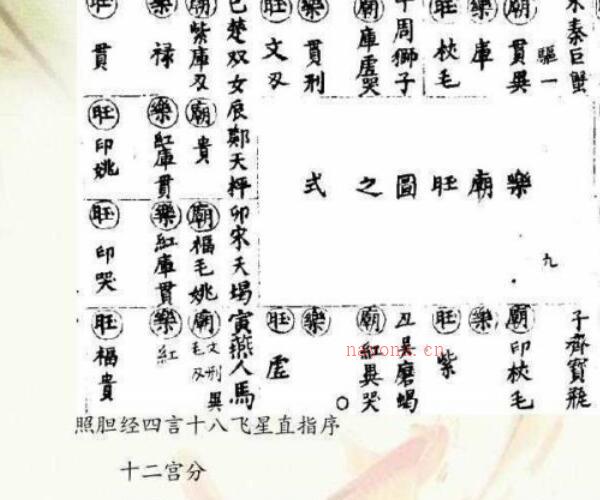 未秦巨蟹
驅一
廟貫異
樂庫
旺杖毛
午周獅子
廟庫虛哭
樂貫刑
旺文刃
巳楚双女辰鄭天秤卯宋天蝎寅燕人馬
廟紫庫刃
樂禄
旺貫
廟貴
樂紅庫貫
旺印姚
樂廟旺圖之式
九
廟福毛姚
樂紅庫貫
旺印哭
子齊寶瓶
廟印杖毛
樂
旺紫
丑吳磨蝎
廟紅異哭
樂
旺虛
廟文刑毛刃異
樂紅
旺福貴
nayona.cn
照胆经四言十八飞星直指序
十二宫分